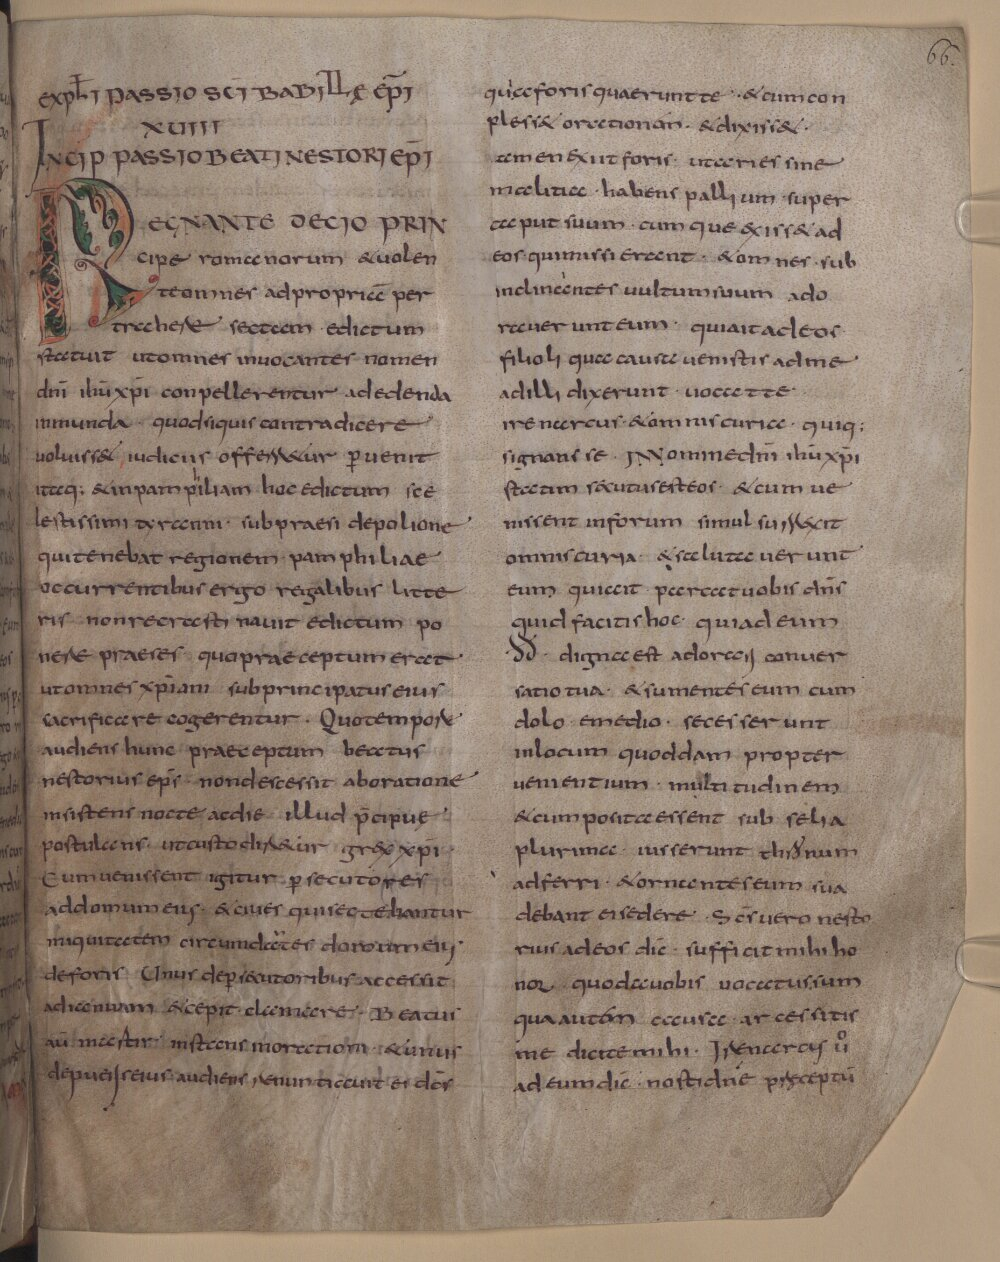 66.
EXPLĪ PASSIO SCĪ BABILLĘ EP̄I
XVIIII
INCIP PASSIO BEATI NESTORI EP̄I
REGNANTE DECIO PRIN
cipe romanorum & uolen
te omnes ad propriā per
trahere sectam edictum
statuit ut omnes inuocantes nomen
dn̄i ihū xp̄i conpellerentur ad edenda
inmunda · quod siquis contradicere
uoluiss& iudiciis offerr&ur peruenit
itaq; & in pamphiliam hoc edictum sce
lestissimi tyranni · sub praesi de polione
qui tenebat regionem pamphiliae
occurrentibus ergo regalibus litte
ris non recrastinauit edictum po
nere praeses quo praeceptum erat
ut omnes xp̄iani sub principatus eius
sacrificare cogerentur · Quo tempore
audiens hunc praeceptum beatus
nestorius ep̄s · non descessit ab oratione
insistens nocte ac die illud p̄cipue
postulans · ut custodir&ur grex xp̄i ·
Cum uenissent igitur p̄secutores
ad domum eius · & ciues qui sectabantur
iniquitatem circumdātes domum eius
deforis Unus de p̄secutoribus accessit
ad ianuam & cepit clamare · Beatus
aū martir instans in orationi · & unus
de pueris eius audiens renuntiauit ei dc̄s
quia foris quaerunt te · & cum con
pless& orationem · & dixiss& ·
amen exiit foris · ut aries sine
malitia · habens pallium · super
caput suum · cum que exiss& ad
eos qui missi erant · & omnes · sub
inclinantes uultum suum ado
rauerunt eum · qui ait ad eos
filioli quae causa uenistis ad me
ad illi dixerunt · uocat te
irenarcus · & omnis curia · qui q;
signans se · IN nomine dn̄i ihū xp̄i
statim secutus est eos · & cum ue
nissent in forum simul surrexit
omnis curia · & salutauerunt
eum qui ait parcat uobis dn̄s
quid facitis hoc · qui ad eum
dd̄ · digna est adorari conuer
satio tua · & sumentes eum cum
dolo e medio · secesserunt
in locum quoddam propter
uenientium multitudinem
& cum posita essent sub selia
plurima · iusserunt thronum
adferri · & ornantes eum sua
debant ei sedere · Sc̄s uero nesto
rius ad eos dic̄ · sufficit mihi ho
nor · quod a uobis uocatus sum
qua autem causa arcessitis
me dicite mihi · Irenarcus ū
ad eum dic̄ · nosti dn̄e preceptū